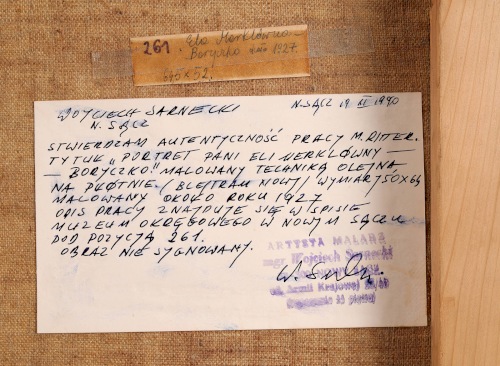 261. Ela Merklówna-
Boryczko około 1927.
645 x 52.
WOJCIECH SARNECKI
N. SĄCZ
N. SĄCZ 19 XI 1990
STWIERDZAM AUTENTYCZNOŚĆ PRACY M. RITTER.
TYTUŁ „PORTRET PANI ELI MERKLÓWNY —
— BORYCZKO." MALOWANY TECHNIKĄ OLEJNĄ
NA PŁÓTNIE / BLEJTRAM NOWY / WYMIAR / 50 x 64
MALOWANY OKOŁO ROKU 1927
OPIS PRACY ZNAJDUJE SIĘ W SPISIE
MUZEUM OKRĘGOWEGO W NOWYM SĄCZU
POD POZYCJĄ 261.
OBRAZ NIE SYGNOWANY.
ARTYSTA MALARZ
mgr Wojciech Sarnecki
Armii Krajowej